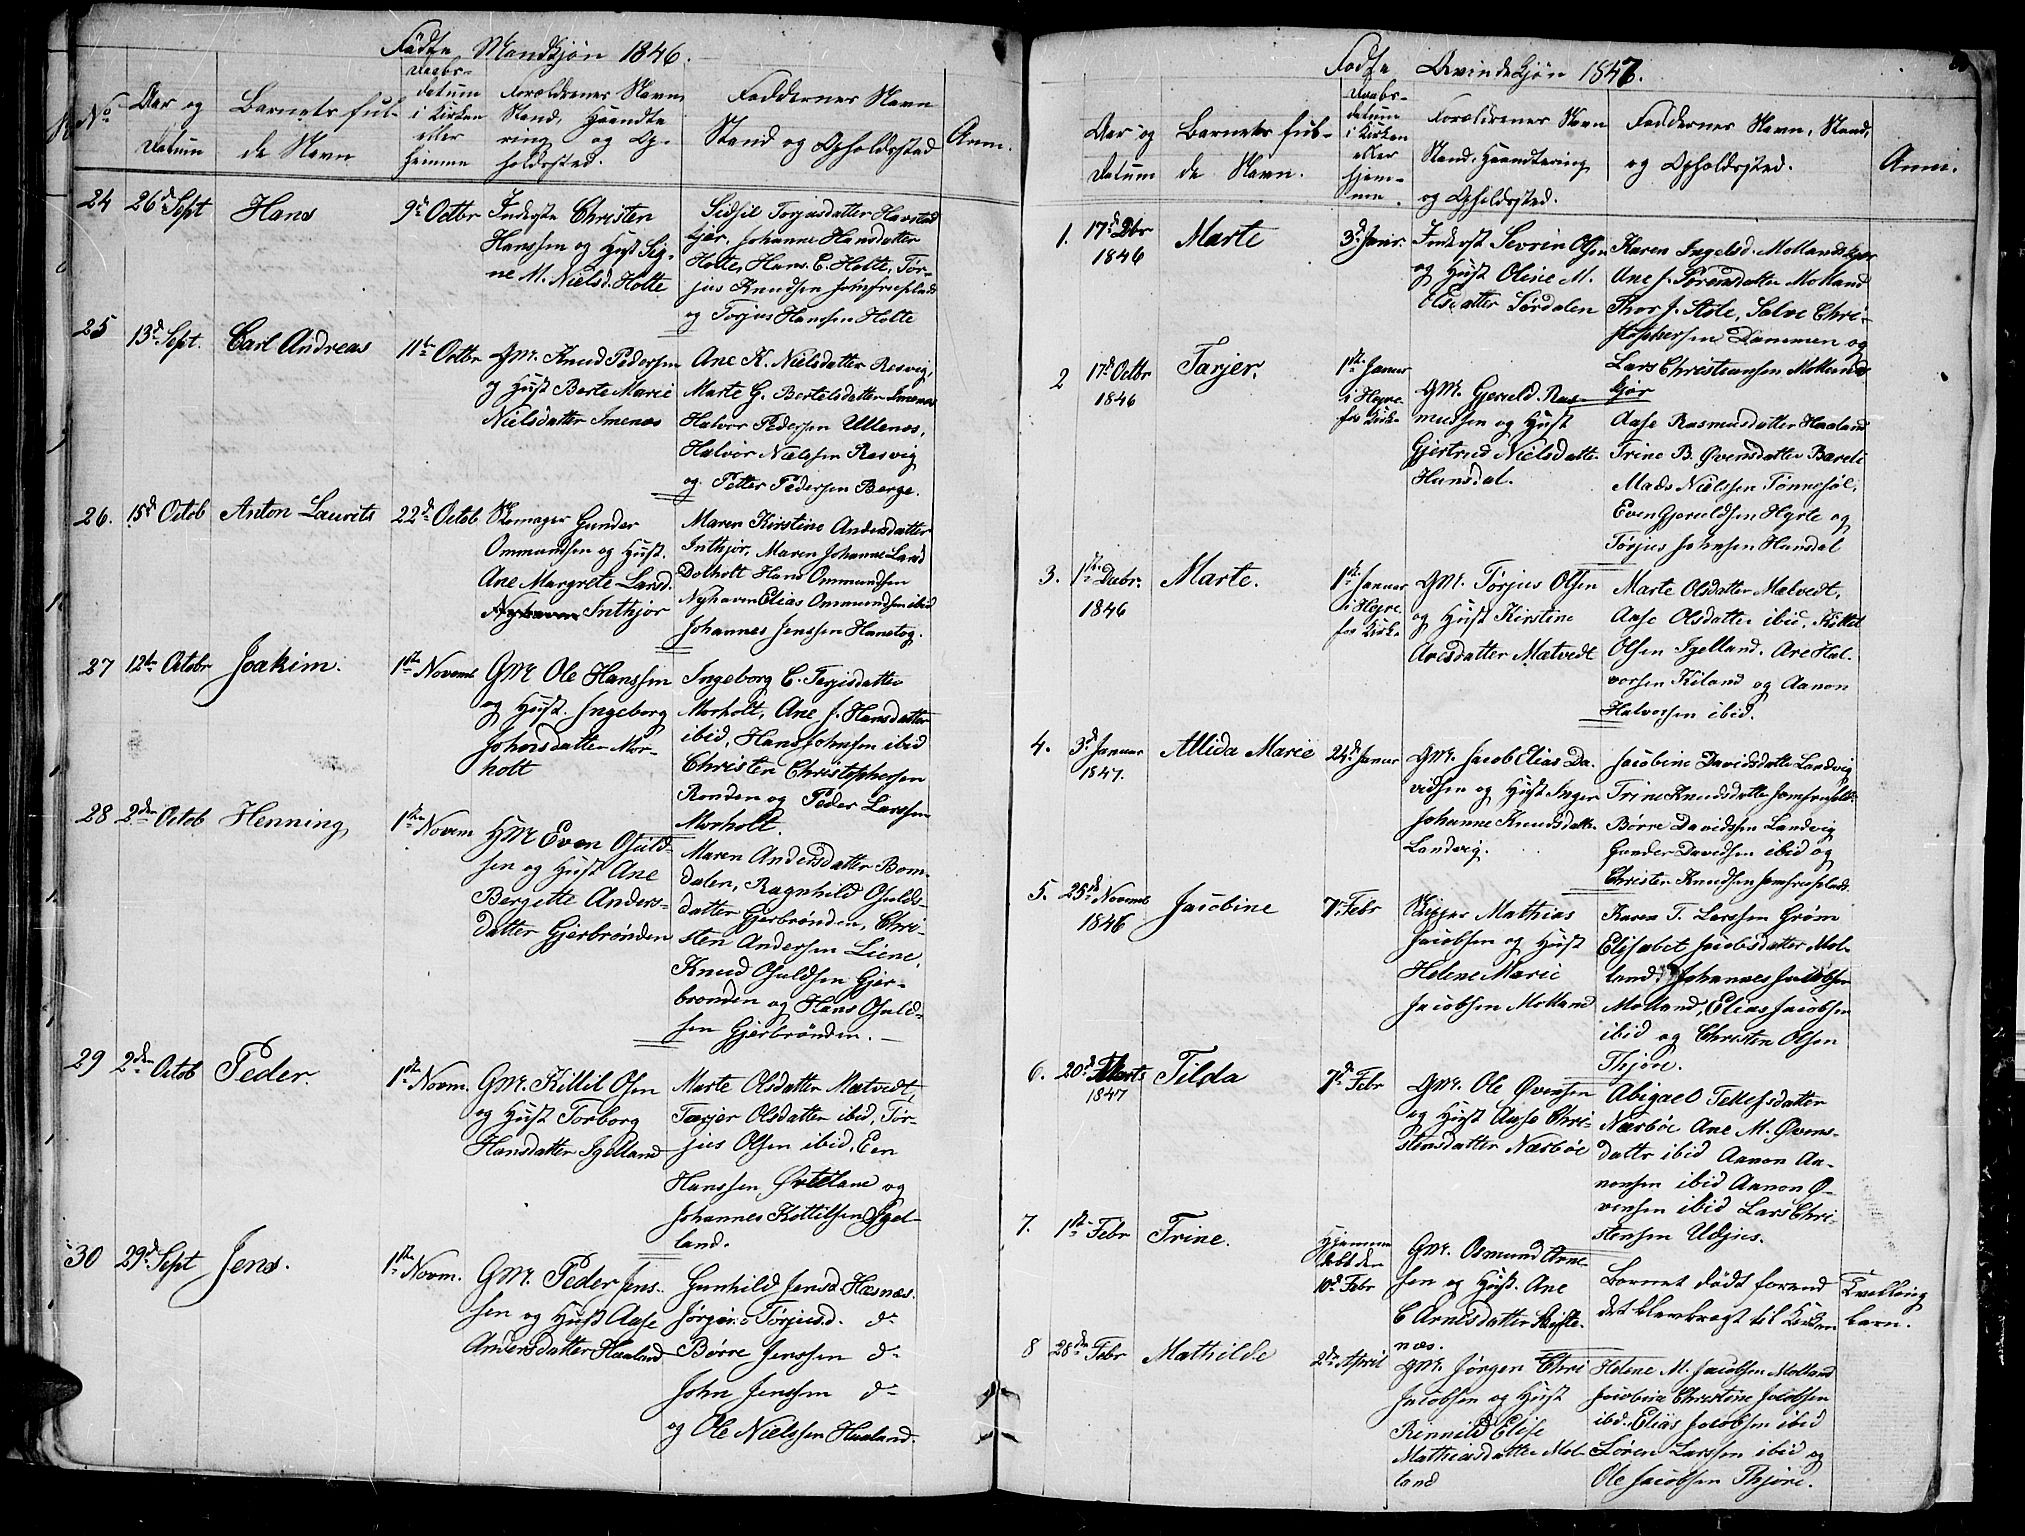 Födte Mandkjøn 1846.
No
Aar og
Datum
Barnets ful-
de Navn
Daabs-
datum
i Kirken
eller
hjemme
Forældrenes Navn,
Stand, Haandte
ring og Op-
holdssted.
Faddernes Navn
Stand og Opholdssted
Anm.
24 26d Sept Hans 9d Octbr
Inderste Christen
Hanssen og Hust Sig-
ne M. Nielsd. Holte
Sidsil Torjusdatter Havstad
kjer, Johanne Hansdatter
Holte, Hans C. Holte, Tør-
jus Knudsen Jomfrueplads
og Torjus Hansen Holte
25 13d Sept. Carl Andreas 11te Octbr
GM. Knud Pedersen
og Hust Berte Marie
Nielsdatter Imenes
Ane K. Nielsdatter Resvig,
Marte G. Bertelsdatter Imenes
Halvor Pedersen Ullenes,
Halvor Nielssen Resvig
og Petter Pedersen Berge.
26. 15d Octob Anton Laurits 22d Octob
Skomager Gunder
Ommundsen og Hust.
Ane Margrete Land.
Nyhaven Inthjør
Maren Kirstine Andersdatter
Inthjør, Maren Johanne Land
Dolholt Hans Ommundsen
Nyhaven Elias Ommundsen ibid
Johannes Jenssen Hanetog.
27 12te Octobr Joakim. 1ste Novemb
GM. Ole Hanssen
og Hust. Ingeborg
Johnsdatter Mor-
holt
Ingeborg C. Terjisdatter
Morholt, Ane J. Hansdatter
ibid, Hans Johnsen ibid
Christen Christophersen
Ronden og Peder Larssen
Morholt.
28 2den Octob Henning 1ste Novem
HM Even Osuld-
sen og Hust Ane
Bergitte Anders-
datter Gjerbrønden
Maren Andersdatter Bom-
dalen, Ragnhild Osulds-
datter Gjerbrønden, Chri-
sten Andersen Liene,
Knud Osuldsen Gjer-
bronden og Hans Osuld-
sen Gjerbrönden.
29 2den Octob Peder. 1ste Novm.
GM. Kittil Osen
og Hust Torborg
Hansdatter Igelland
Marte Olsdatter Mætvedt,
Tarjer Olsdatter ibid, Tør-
jus Olsen ibid, Een
Hanssen Østelane og
Johannes Kettilsen Igel-
land.
30 29d Sept Jens. 1ste Novm.
GM. Peder Jens-
sen og Hust Aase
Andersdatter Haaland
Gunhild Jensd. Hæsnæs.
Jørgine Torjusd. do
Børre Jenssen do
John Jenssen do
og Ole Nielssen Haaland.
Födte Qvindekjøn 1847.
Aar og
Datum
Barnets ful-
de Navn.
Daabs-
datum
i Kirken
eller
hjem-
me.
Forældrenes Navn
Stand, Haandtering
og Opholdssted.
Faddernes Navn, Stand,
og Opholdssted.
Anm.
1. 17d Dbr
1846
Marte 3d Janr.
Inderst Sevrin Olsen
og Hust Oline M.
Olsdatter Sørdalen
Karen Ingelsd. Mollandskjær
Ane J. Sørensdatter Molland
Thor J. Aste, Salve Chri-
stophersen Dammen og
Lars Christiansen Mollands
kjær
2 17d Octbr
1846
Tarjer. 1ste Januar
i Hegre-
fos Kirk-
GM. Gjeruld Ras-
mussen og Hust
Gjertrud Nielsdatte-
Hunsdal.
Aase Rasmusdatter Haaland
Trine B. Øvensdatter Bareli
Mads Nielssen Tønnesøl,
Even Gjeruldsen Hyrte og
Torjus Johnsen Hunsdal
3. 1ste Decbr.
1846
Marte. 1ste Januar
i Hegre-
fos Kirk-
GM. Torjus Olsen
og Hust Kirstine
Arisdatter Mætvedt
Marte Olsdatter Mælvedt,
Aase Olsdatter ibid, Kittel
Olsen Igelland, Are Hal-
vorsen Kiland og Aanon
Halvorsen ibid.
4. 3d Januar
1847.
Allida Marie 24d Januar
GM. Jacob Elias Da-
vidsen og Hust Inger
Johanne Knudsdatte-
Landvig.
Jacobine Davidsdatte Landvig
Trine Knudsdatte Jomfruplds.
Børre Davidssen Landvig
Gunder Davidsen ibid og
Christen Knudsen Jomfruplads.
5. 25d Novemb
1846
Jacobine 7d Febr
Skipper Mathias
Jacobsen og Hust
Helene Marie
Jacobsen Molland
Karen T. Larssen Grøm
Elisabet Jacobsdatter Mol-
land, Johannes Jacobsen
Molland, Elias Jacobsen
ibid og Christen Olsen
Thjøre.
6. 20d Marts
1847
Tilda 7d Febr
GM. Ole Øvensen
og Hust Aase Chri-
stensdatter Næsböe
Abigael Tellefsdatter
Næsböe Ane M. Øvens-
datte ibid Aanon Aa-
nonsen ibid Aanon Ø-
vensen ibid Lars Chri-
stensen Udjus.
7. 1ste Febr Trine. Hjemme
døbt den
10d Febr
GM. Osmund Arne-
sen og Hust. Ane
C Arnesdatter Skifte-
næs.
Barnet dödt forend
det blev bragt til Kirken
Tvilling
barn.
8 28de Febr Mathilde 2den April
GM. Jørgen Chri
Jacobsen og Hust
Rinnild Elise
Mathiasdatter Mol-
land
Helene M. Jacobsen Molland
Jacobine Christine Jacobsen
ibd. Elias Jacobsen ibid
Søren Larssen ibid og
Ole Jacobsen Thjøre.